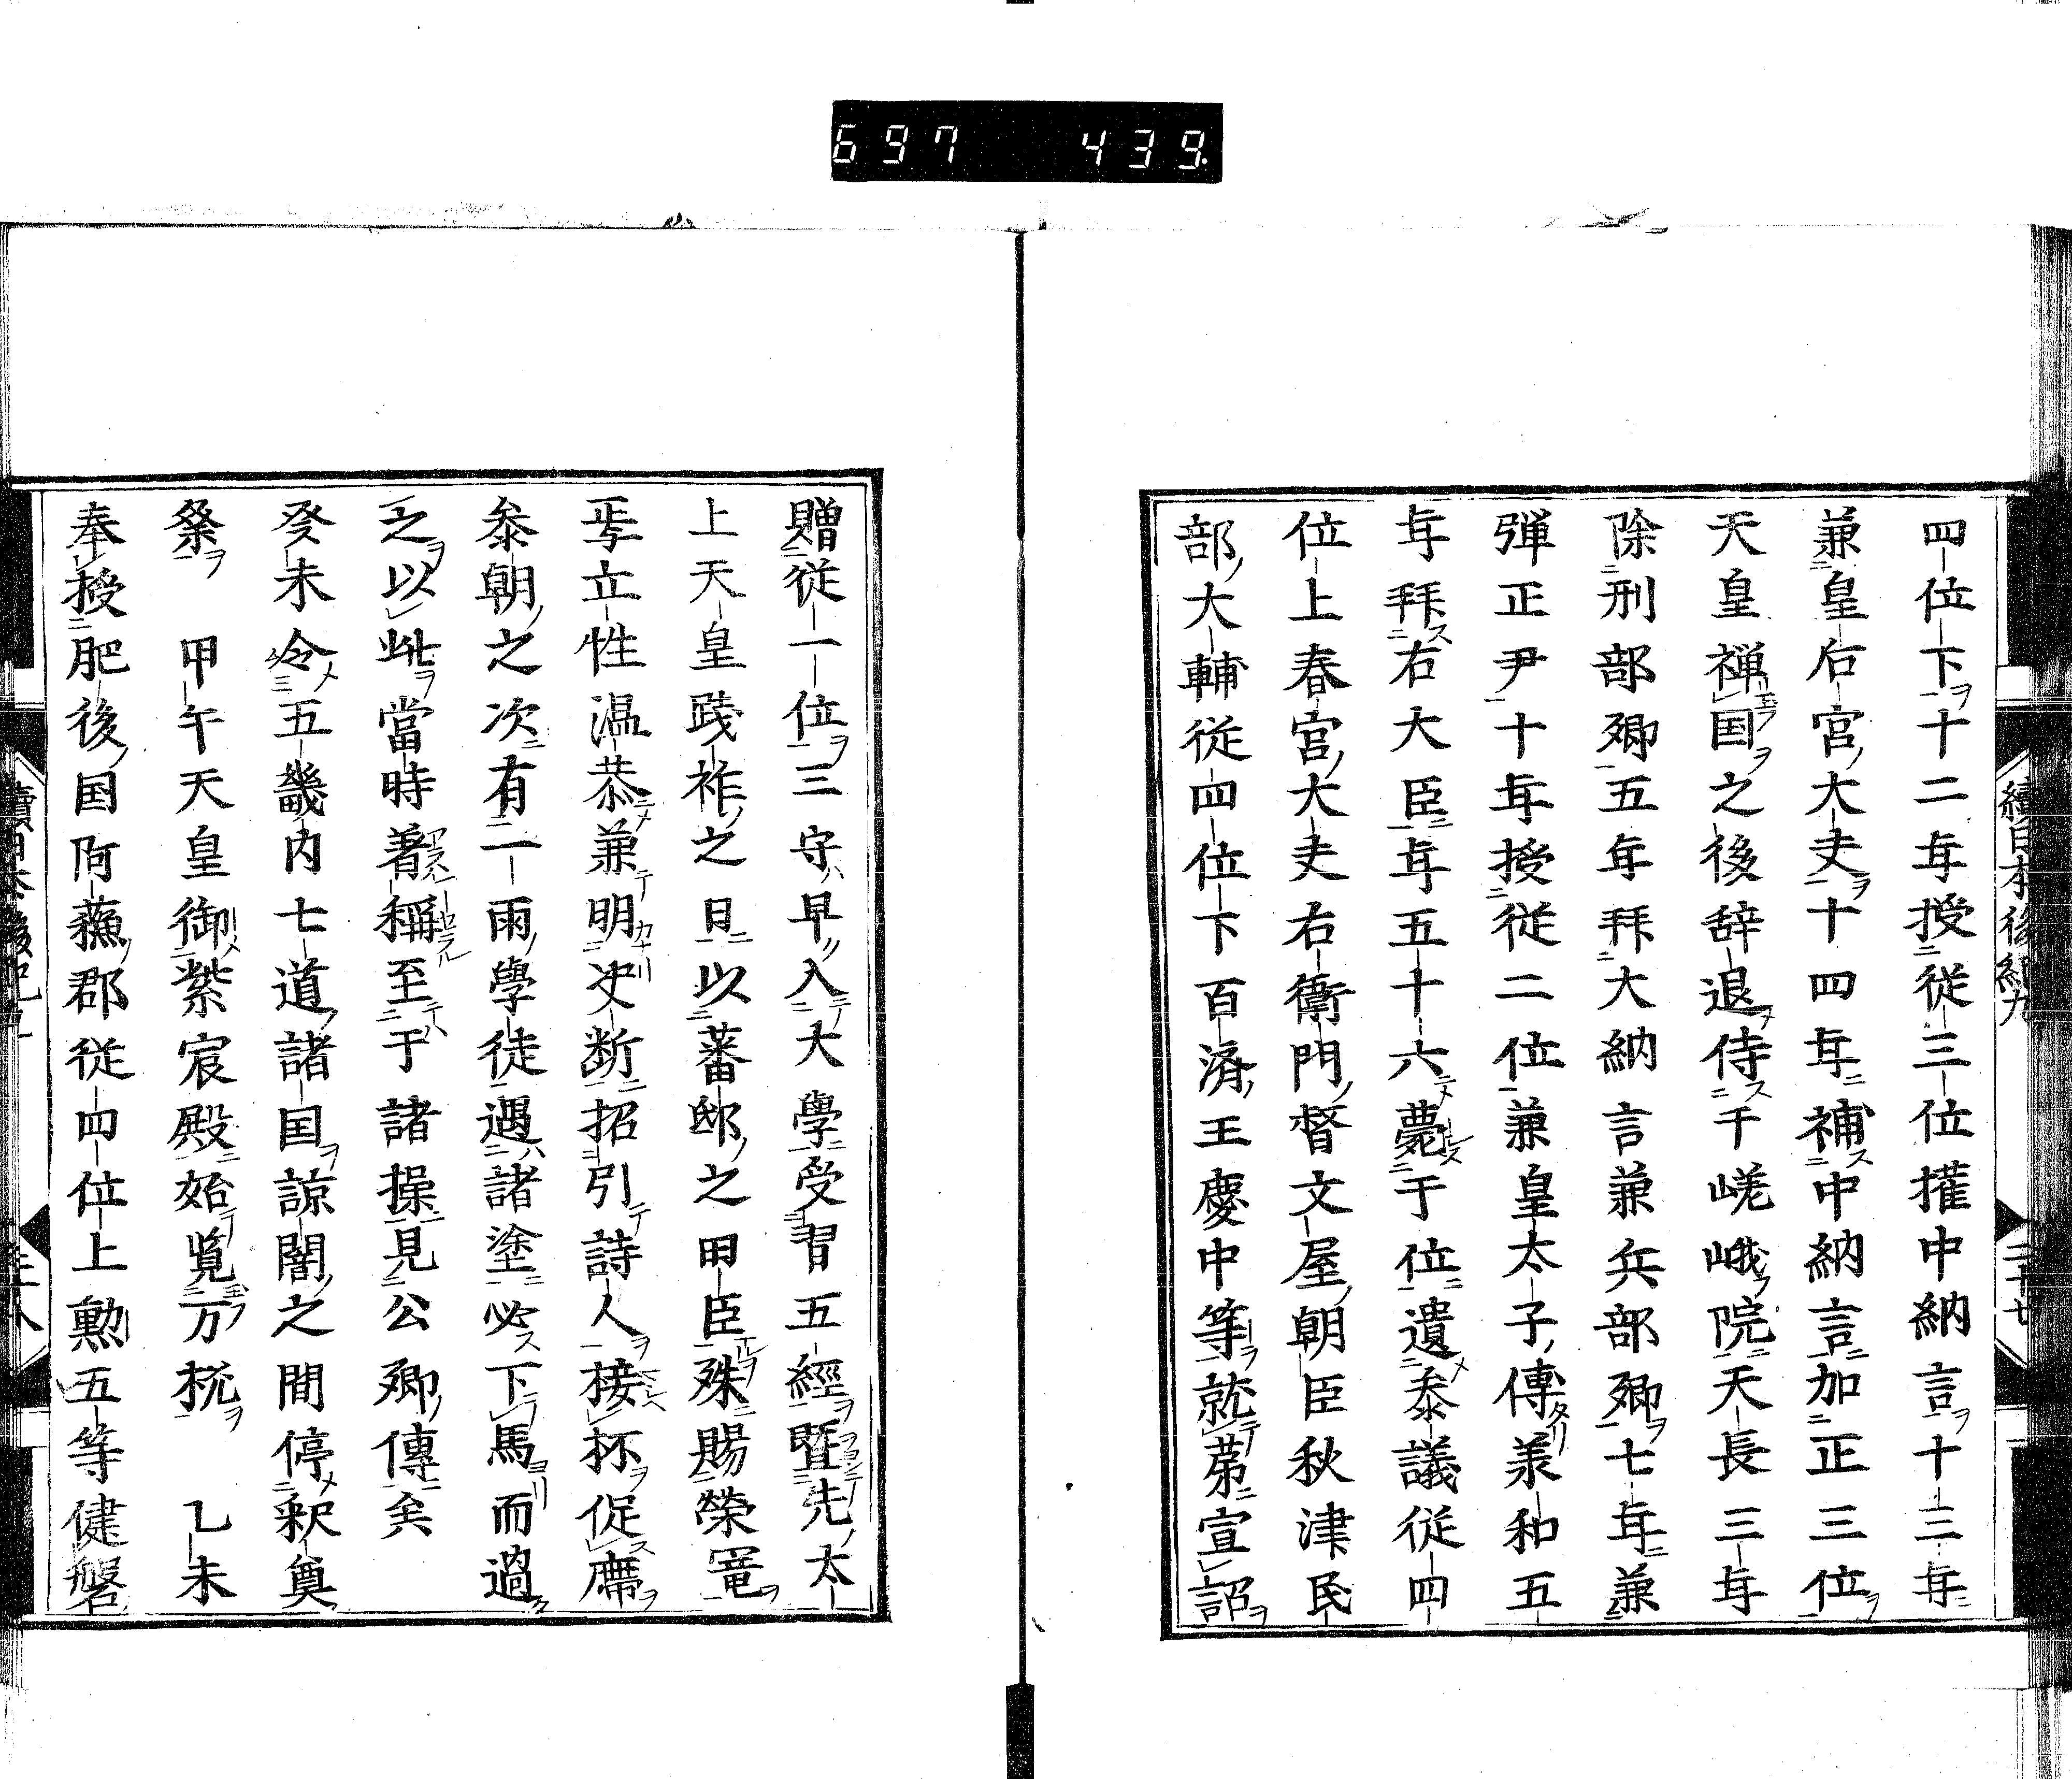 697 439.
續日本後紀九
二十七
四位下十二年授従三位権中納言十三年
兼皇后宮大夫十四年補中納言加正三位
天皇禅国之後辞退侍于嵯峨院天長三年
除刑部卿五年拜大納言兼兵部卿七年兼
弾正尹十年授従二位兼皇太子傅羕和五
年拜右大臣年五十六薨于位遺参議従四
位上春宮大夫右衛門督文屋朝臣秋津民
部大輔従四位下百済王慶中等就苐宣詔
贈従一位三守早入大學受習五經曁先太
上天皇践祚之日以蕃邸之旧臣殊賜榮寵
焉立性温恭兼明决断招引詩人接杯促席
参朝之次有一二両學徒遇諸塗必下馬而過
之以此當時著稱至于諸操見公卿傳矣
癸未令五畿内七道諸国諒闇之間停釈奠
祭　甲午天皇御紫宸殿始覧万機　乙未
奉授肥後国阿蘇郡従四位上勲五等健磐